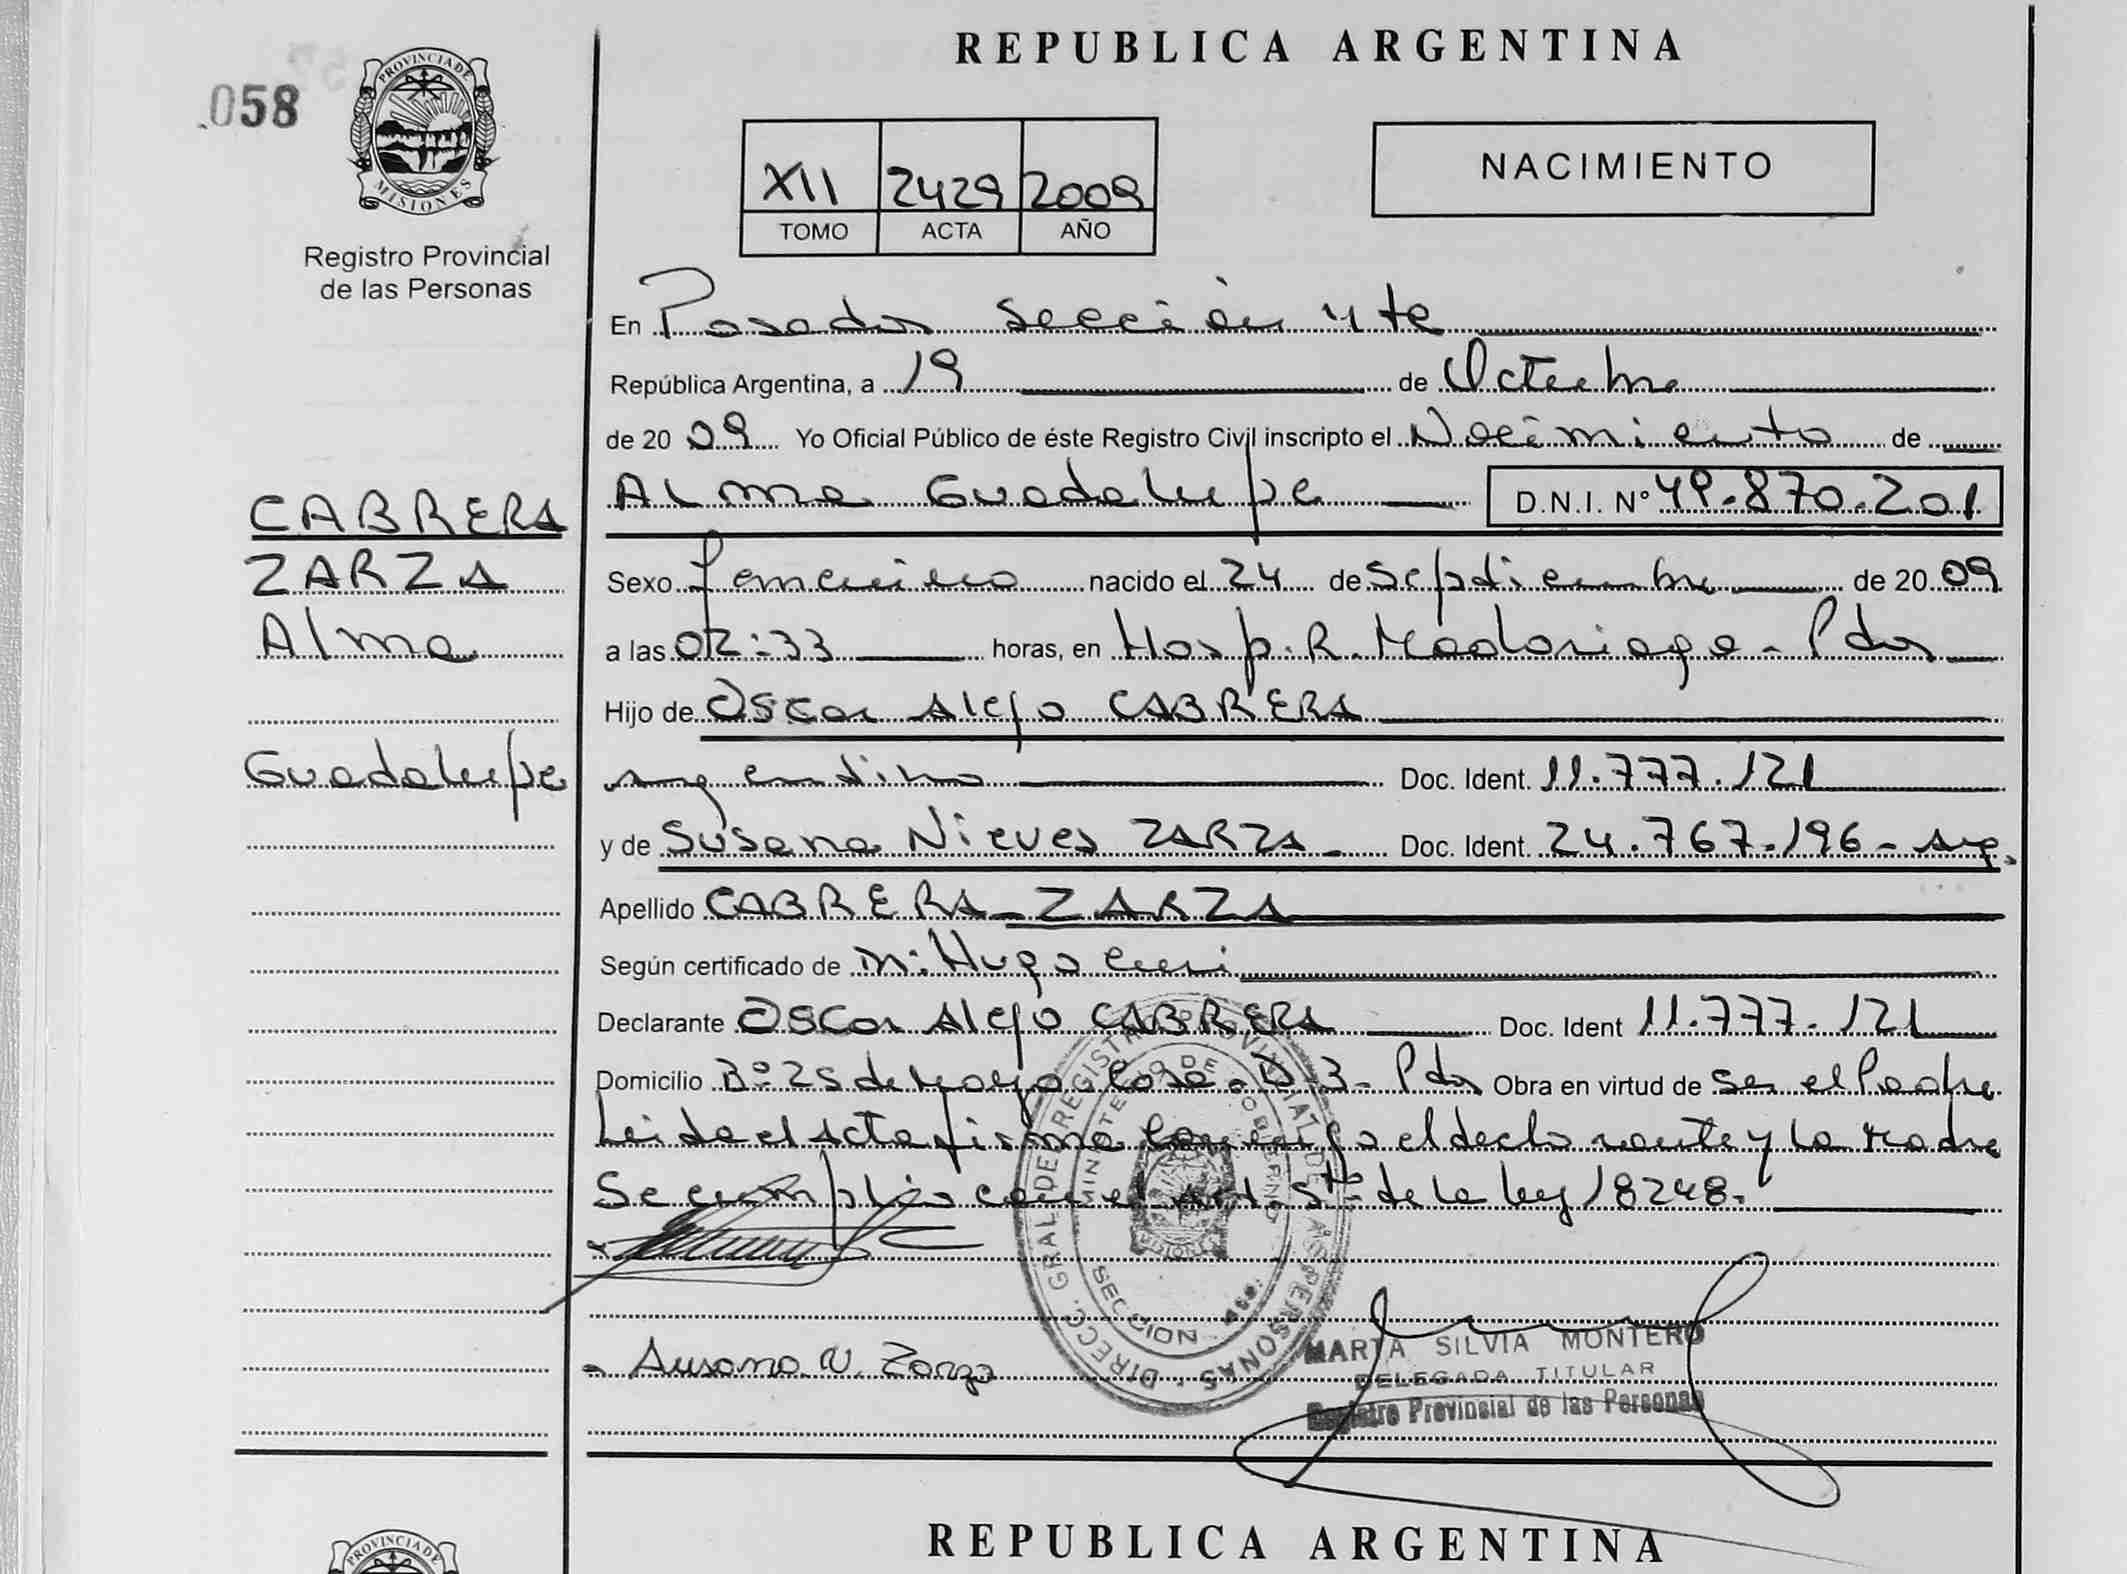 REPUBLICA ARGENTINA
058
PROVINCIA DE
MISIONES
Registro Provincial
de las Personas
XII 2429 2009
TOMO ACTA AÑO
NACIMIENTO
En Posadas Sección 4ta
República Argentina, a 19 de Octubre
de 2009 Yo Oficial Público de éste Registro Civil inscripto el Nacimiento de
Alma Guadalupe D.N.I. Nº 49.870.201
CABRERA
ZARZA
Alma
Guadalupe
Sexo femenino nacido el 24 de Septiembre de 2009
a las 02:33 horas, en Hosp. R. Madariaga - Pdas
Hijo de Oscar Alejo CABRERA
argentino Doc. Ident. 11.777.121
y de Susana Nieves ZARZA - Doc. Ident. 24.767.196 - arg.
Apellido CABRERA - ZARZA
Según certificado de M: Hugo
Declarante Oscar Alejo CABRERA Doc. Ident 11.777.121
Domicilio Bº 25 de Mayo Casa - D-3 - Pdas Obra en virtud de ser el Padre
Leída el Acta firma conmigo el declarante y la Madre
Se cumplió con el Art. 5to de la ley 18248.
DIRECC. GRAL. DEL REGISTRO PROVINCIAL DE LAS PERSONAS
MINISTERIO DE GOBIERNO
SECCION
Susana N. Zarza
MARTA SILVIA MONTERO
DELEGADA TITULAR
Registro Provincial de las Personas
REPUBLICA ARGENTINA
PROVINCIA DE